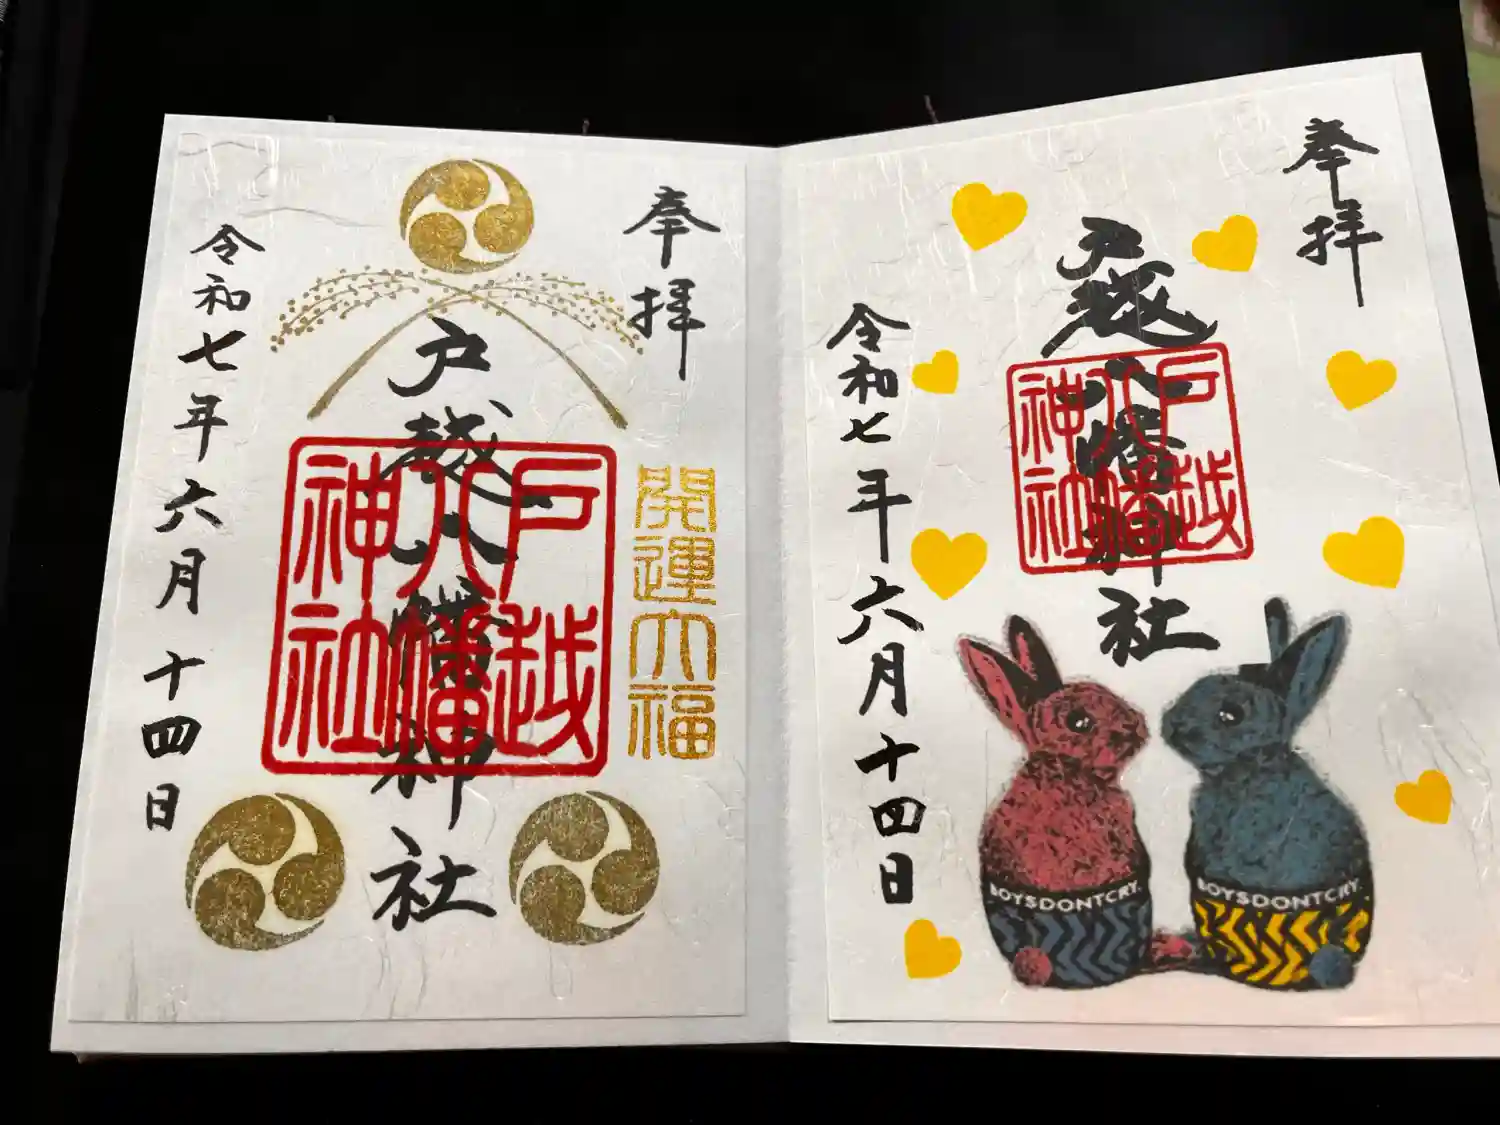 奉拝
開運大福
戸越八幡神社
戸越
八幡
神社
令和七年六月十四日
奉拝
戸越八幡神社
戸越
八幡
神社
令和七年六月十四日
BOYSDONTCRY.
BOYSDONTCRY.